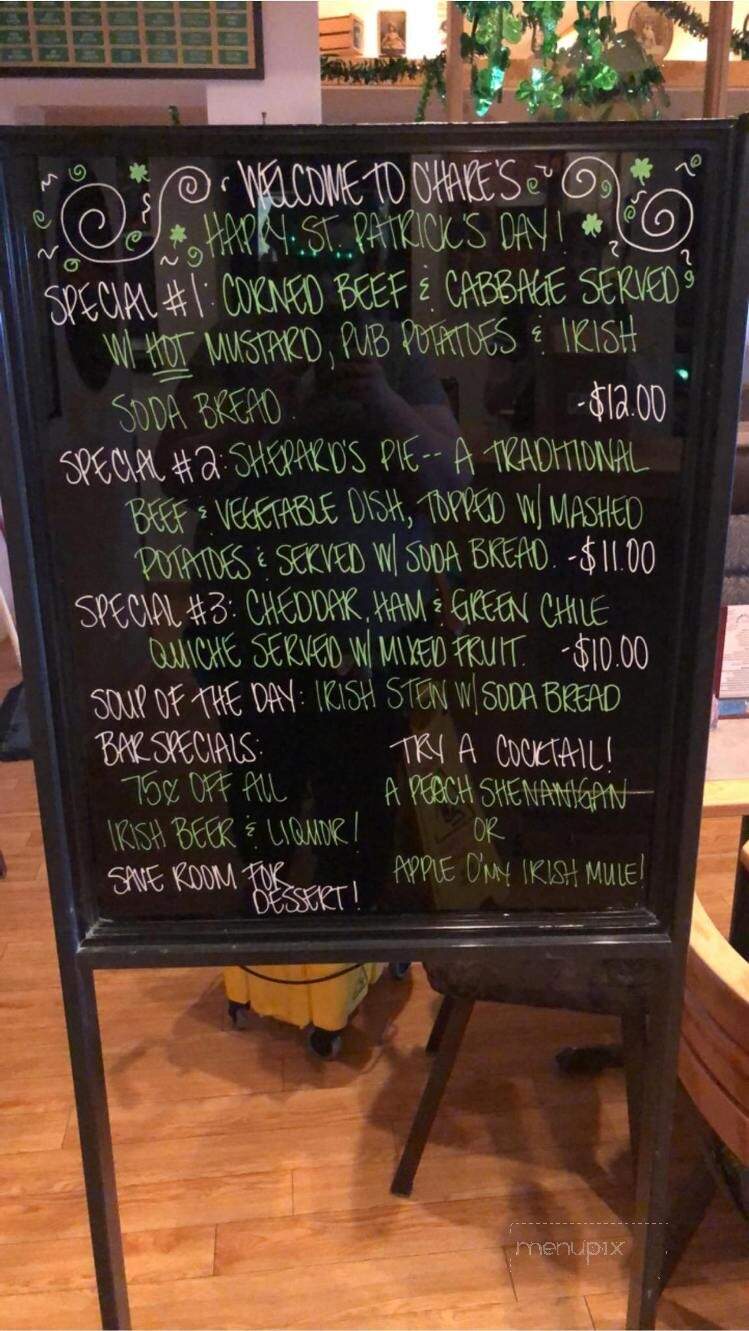 WELCOME TO O'HARE'S
HAPPY ST. PATRICK'S DAY!
SPECIAL #1: CORNED BEEF & CABBAGE SERVED
W/ HOT MUSTARD, PUB POTATOES & IRISH
SODA BREAD. -$12.00
SPECIAL #2: SHEPARD'S PIE-- A TRADITIONAL
BEEF & VEGETABLE DISH, TOPPED W/ MASHED
POTATOES & SERVED W/ SODA BREAD. -$11.00
SPECIAL #3: CHEDDAR, HAM & GREEN CHILE
QUICHE SERVED W/ MIXED FRUIT. -$10.00
SOUP OF THE DAY: IRISH STEW W/ SODA BREAD
BAR SPECIALS:
75¢ OFF ALL
IRISH BEER & LIQUOR!
SAVE ROOM FOR
DESSERT!
TRY A COCKTAIL!
A PEACH SHENANIGAN
OR
APPLE O'MY IRISH MULE!
menupix